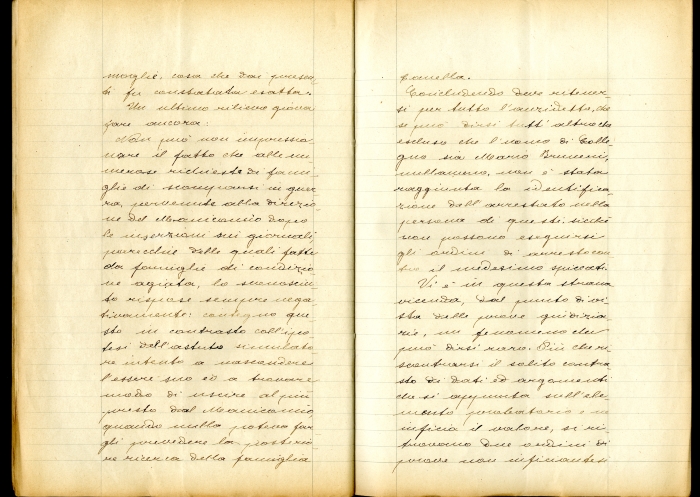 moglie, cosa che dai presen-
ti fu constatata esatta.
Un ultimo rilievo giova
fare ancora:
Non può non impressio-
nare il fatto che alle nu-
merose richieste di fami-
glie di scomparsi in guer-
ra, pervenute alla direzio-
ne del Manicomio dopo
le inserzioni sui giornali,
parecchie delle quali fatte
da famiglie di condizio-
ne agiata, lo sconosciu-
to rispose sempre nega-
tivamente: contegno que-
sto in contrasto coll'ipo-
tesi dell'astuto simulato-
re intento a nascondere
l'essere suo ed a trovare
modo di uscire al più
presto dal Manicomio,
quando nulla poteva far-
gli prevedere la posterio-
re ricerca della famiglia
Canella.
Concludendo deve ritener-
si per tutto l'anzidetto, che
se può dirsi tutt'altro che
escluso che l'uomo di Colle-
gno sia Mario Bruneri,
nullameno, non è stata
raggiunta la identifica-
zione dell'arrestato nella
persona di questi, sicché
non possono eseguirsi
gli ordini di arresto con-
tro il medesimo spiccati.
Vi è in questa strana
vicenda, dal punto di vi-
sta delle prove giudizia-
rie, un fenomeno che
può dirsi raro. Più che ri-
scontrarsi il solito contra-
sto di dati ed argomenti
che si appunta sull'ele-
mento probatorio e ne
inficia il valore, si ri-
trovano due ordini di
prove non inficiantesi